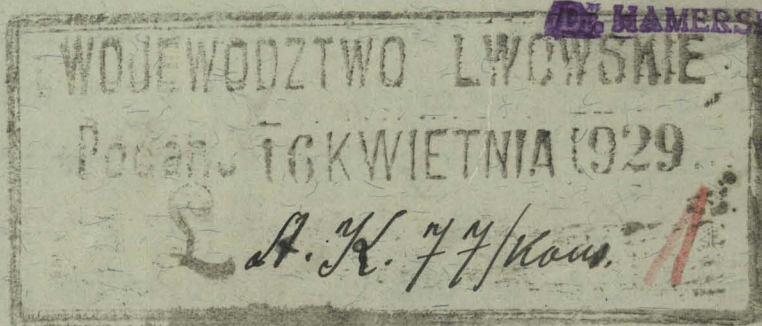 Dr. HAMERS
WOJEWÓDZTWO LWOWSKIE
Podano 16 KWIETNIA 1929
L A. K. 77/Kons.